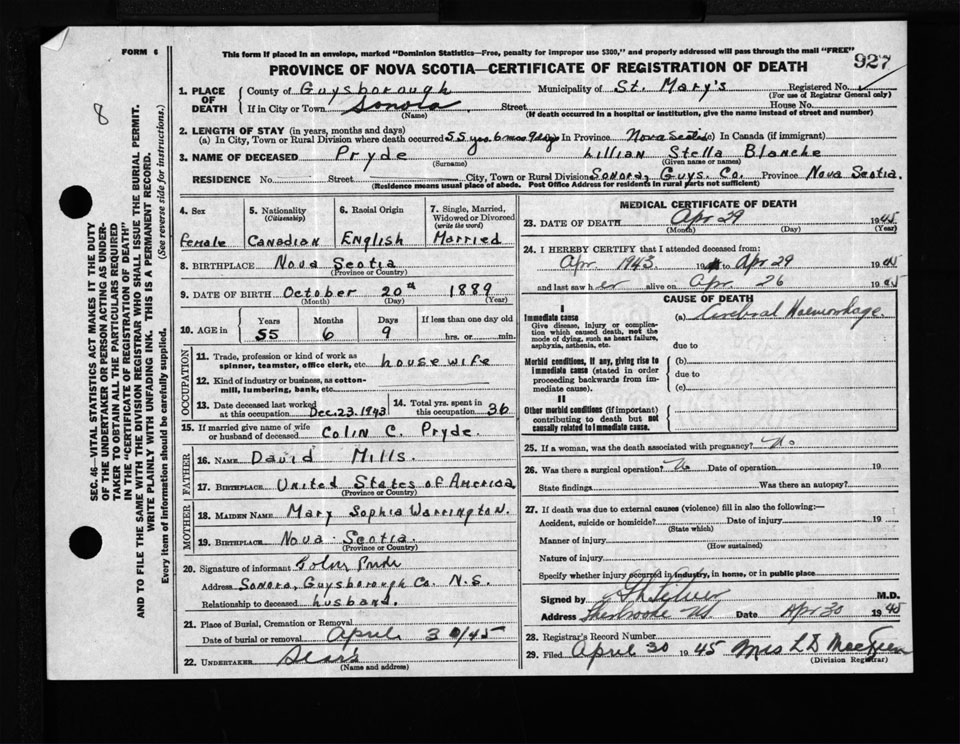 FORM 6
This form if placed in an envelope, marked "Dominion Statistics—Free, penalty for improper use $300," and properly addressed will pass through the mail "FREE"
PROVINCE OF NOVA SCOTIA—CERTIFICATE OF REGISTRATION OF DEATH
927
8
SEC. 46—VITAL STATISTICS ACT MAKES IT THE DUTY
OF THE UNDERTAKER OR PERSON ACTING AS UNDER-
TAKER TO OBTAIN ALL THE PARTICULARS REQUIRED
IN THE "CERTIFICATE OF REGISTRATION OF DEATH"
AND TO FILE THE SAME WITH THE DIVISION REGISTRAR WHO SHALL ISSUE THE BURIAL PERMIT.
WRITE PLAINLY WITH UNFADING INK. THIS IS A PERMANENT RECORD.
Every item of information should be carefully supplied. (See reverse side for instructions.)
1. PLACE OF DEATH
County of Guysborough Municipality of St. Mary's Registered No.
(For use of Registrar General only)
If in City or Town Sonora Street House No.
(Name) (If death occurred in a hospital or institution, give the name instead of street and number)
2. LENGTH OF STAY (in years, months and days)
(a) In City, Town or Rural Division where death occurred 55 yrs 6 mos 9 days In Province Nova Scotia (c) In Canada (if immigrant)
3. NAME OF DECEASED Pryde Lillian Stella Blanche
(Surname) (Given name or names)
RESIDENCE No. Street City, Town or Rural Division Sonora, Guys. Co. Province Nova Scotia.
(Residence means usual place of abode. Post Office Address for residents in rural parts not sufficient)
4. Sex
female
5. Nationality
(Citizenship)
Canadian
6. Racial Origin
English
7. Single, Married,
Widowed or Divorced
(write the word)
Married
8. BIRTHPLACE Nova Scotia
(Province or Country)
9. DATE OF BIRTH October 20th 1889
(Month) (Day) (Year)
10. AGE in
Years Months Days If less than one day old
55 6 9 hrs. or min.
OCCUPATION
11. Trade, profession or kind of work as
spinner, teamster, office clerk, etc. housewife
12. Kind of industry or business, as cotton-
mill, lumbering, bank, etc.
13. Date deceased last worked
at this occupation Dec. 23. 1943
14. Total yrs. spent in
this occupation 36
15. If married give name of wife
or husband of deceased Colin C. Pryde.
FATHER
16. NAME David Mills.
17. BIRTHPLACE United States of America
(Province or Country)
MOTHER
18. MAIDEN NAME Mary Sophia Warrington.
19. BIRTHPLACE Nova Scotia.
(Province or Country)
20. Signature of informant
Address Sonora, Guysborough Co. N.S.
Relationship to deceased husband.
21. Place of Burial, Cremation or Removal
Date of burial or removal April 30/45
22. UNDERTAKER Sears
(Name and address)
MEDICAL CERTIFICATE OF DEATH
23. DATE OF DEATH Apr 29 1945
(Month) (Day) (Year)
24. I HEREBY CERTIFY that I attended deceased from:
Apr. 1943 19 to Apr 29 1945
and last saw her alive on Apr. 26 1945
CAUSE OF DEATH
I
Immediate cause
Give disease, injury or complica-
tion which caused death, not the
mode of dying, such as heart failure,
asphyxia, asthenia, etc.
(a) Cerebral Haemorrhage.
due to
Morbid conditions, if any, giving rise to
immediate cause (stated in order
proceeding backwards from im-
mediate cause).
(b)
due to
(c)
II
Other morbid conditions (if important)
contributing to death but not
causally related to immediate cause.
25. If a woman, was the death associated with pregnancy? No
26. Was there a surgical operation? No Date of operation 19
State findings Was there an autopsy?
27. If death was due to external causes (violence) fill in also the following:—
Accident, suicide or homicide? Date of injury 19
(State which)
Manner of injury
(How sustained)
Nature of injury
Specify whether injury occurred in industry, in home, or in public place
Signed by M.D.
Address Sherbrooke NS Date Apr 30 1945
28. Registrar's Record Number
29. Filed April 30 1945 Mrs L D
(Division Registrar)